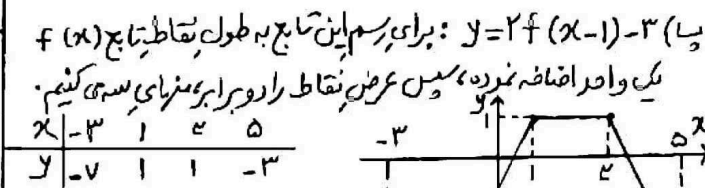 پ) y=۲f(x-۱)-۳ : برای رسم این تابع به طول نقاط تابع f(x)
یک واحد اضافه نموده، سپس عرض نقاط را دو برابر، منهای سه می کنیم.
x -۳ ۱ ۴ ۵
y -۷ ۱ ۱ -۳
y
۱
-۳ ۱ ۴ ۵ x